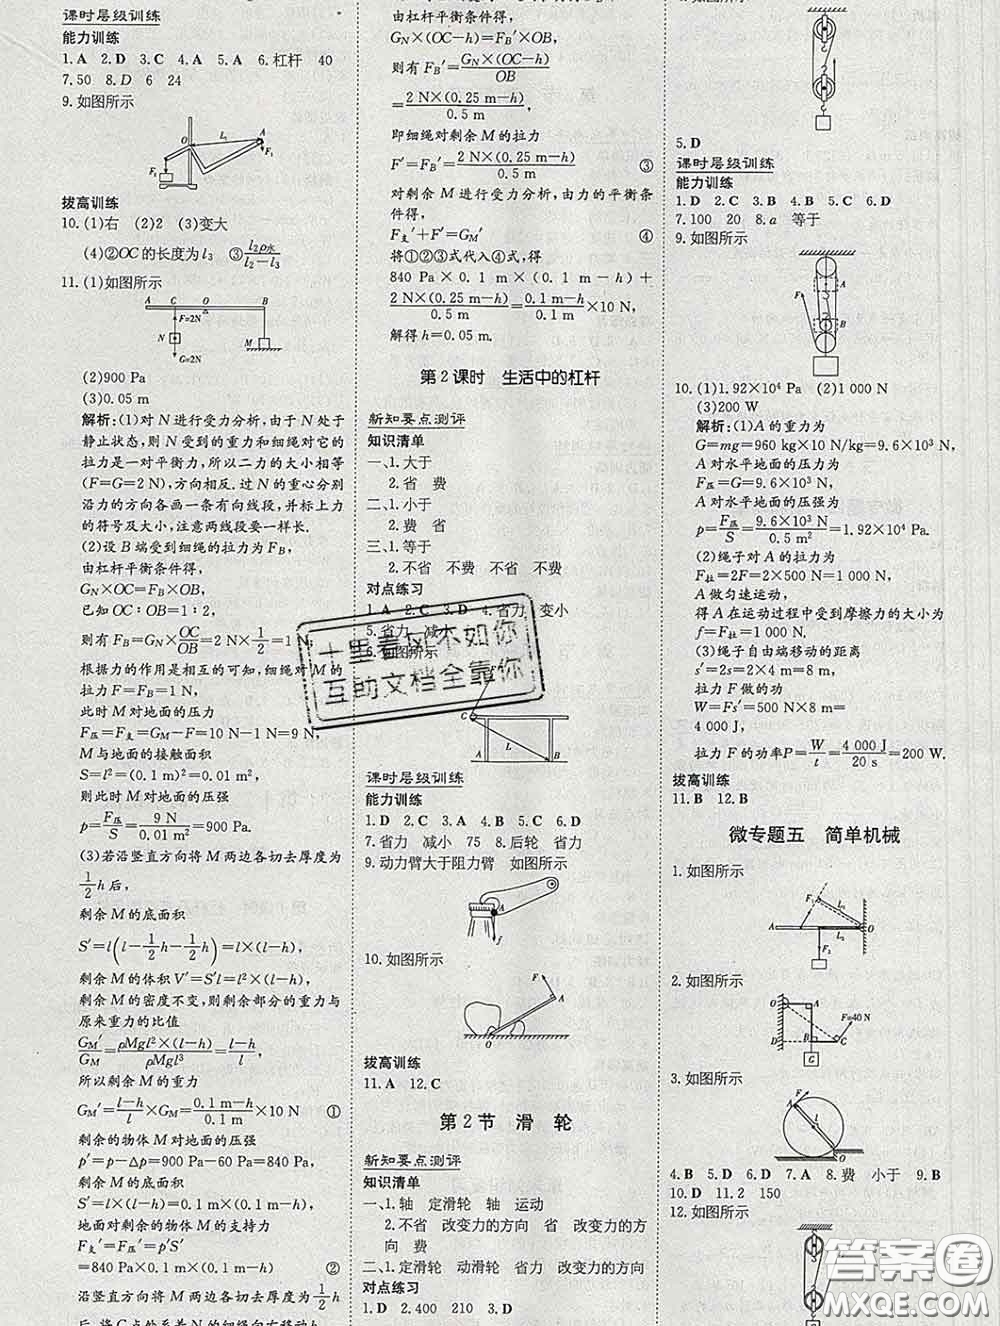 课时层级训练
能力训练
1. A 2. D 3. C 4. A 5. A 6. 杠杆 40
7. 50 8. D 6 24
9. 如图所示
O L₁ A F₁ F₂
拔高训练
10. (1)右 (2)2 (3)变大
(4)②OC的长度为l₃ ③l₂ρ水/(l₂-l₃)
11. (1)如图所示
A C O B
F=2N
N M
G=2N
(2)900 Pa
(3)0.05 m
解析:(1)对N进行受力分析,由于N处于
静止状态,则N受到的重力和细绳对它的
拉力是一对平衡力,所以二力的大小相等
(F=G=2 N),方向相反. 过N的重心分别
沿力的方向各画一条有向线段,并标上力
的符号及大小,注意两线段要一样长.
(2)设B端受到细绳的拉力为F_B,
由杠杆平衡条件得,
G_N×OC=F_B×OB,
已知OC∶OB=1∶2,
则有F_B=G_N×OC/OB=2 N×1/2=1 N,
根据力的作用是相互的可知,细绳对M的
拉力F=F_B=1 N,
此时M对地面的压力
F压=F支=G_M-F=10 N-1 N=9 N,
M与地面的接触面积
S=l²=(0.1 m)²=0.01 m²,
则此时M对地面的压强
p=F压/S=9 N/0.01 m²=900 Pa.
(3)若沿竖直方向将M两边各切去厚度为
1/2h后,
剩余M的底面积
S′=l(l-1/2h-1/2h)=l×(l-h),
剩余M的体积V′=S′l=l²×(l-h),
剩余M的密度不变,则剩余部分的重力与
原来重力的比值
G_M′/G_M=ρMgl²×(l-h)/ρMgl³=(l-h)/l,
所以剩余M的重力
G_M′=(l-h)/l×G_M=(0.1 m-h)/0.1 m×10 N ①
剩余的物体M对地面的压强
p′=p-△p=900 Pa-60 Pa=840 Pa,
S′=l×(l-h)=0.1 m×(0.1 m-h),
地面对剩余的物体M的支持力
F支′=F压′=p′S′
=840 Pa×0.1 m×(0.1 m-h) ②
因为沿竖直方向将M两边各切去厚度为1/2h
由杠杆平衡条件得,
G_N×(OC-h)=F_B′×OB,
则有F_B′=G_N×(OC-h)/OB
=2 N×(0.25 m-h)/0.5 m,
即细绳对剩余M的拉力
F′=F_B′=2 N×(0.25 m-h)/0.5 m ③
对剩余M进行受力分析,由力的平衡条
件得,
F支′+F′=G_M′ ④
将①②③式代入④式,得
840 Pa×0.1 m×(0.1 m-h)+
2 N×(0.25 m-h)/0.5 m=(0.1 m-h)/0.1 m×10 N,
解得h=0.05 m.
第2课时 生活中的杠杆
新知要点测评
知识清单
一、1. 大于
2. 省 费
二、1. 小于
2. 费 省
三、1. 等于
2. 不省 不费 不省 不费
对点练习
1. A 2. C 3. D 4. 省力 变小
5. 省力 减小
6. 如图所示
C L A B
课时层级训练
能力训练
1. D 2. C 3. A 4. B 5. C 6. D
7. 省力 减小 75 8. 后轮 省力
9. 动力臂大于阻力臂 如图所示
A f
10. 如图所示
F A O
拔高训练
11. A 12. C
第2节 滑轮
新知要点测评
知识清单
一、1. 轴 定滑轮 轴 运动
2. 不省 改变力的方向 省 改变力的方
向 费
二、1. 定滑轮 动滑轮 省力 改变力的方向
对点练习
1. D 2. 400 210 3. D
5. D
课时层级训练
能力训练
1. D 2. C 3. B 4. B 5. C 6. D
7. 100 20 8. a 等于
9. 如图所示
A F B
10. (1)1.92×10⁴ Pa (2)1 000 N
(3)200 W
解析:(1)A的重力为
G=mg=960 kg×10 N/kg=9.6×10³ N,
A对水平地面的压力为
F压=G=9.6×10³ N,
A对水平地面的压强为
p=F压/S=9.6×10³ N/0.5 m²=1.92×10⁴ Pa.
(2)绳子对A的拉力为
F拉=2F=2×500 N=1 000 N,
A做匀速运动,
得A在运动过程中受到摩擦力的大小为
f=F拉=1 000 N.
(3)绳子自由端移动的距离
s′=2s=2×4 m=8 m,
拉力F做的功
W=Fs′=500 N×8 m=
4 000 J,
拉力F的功率P=W/t=4 000 J/20 s=200 W.
拔高训练
11. B 12. B
微专题五 简单机械
1. 如图所示
F₁ L₁ L₂ O F₂
2. 如图所示
O A F=40N D B C G
3. 如图所示
A L O
4. B 5. D 6. D 7. A 8. 费 小于 9. B
10. D 11. 2 150
12. 如图所示
十里春风不如你
互助文档全靠你
答案圈
MXQE.COM